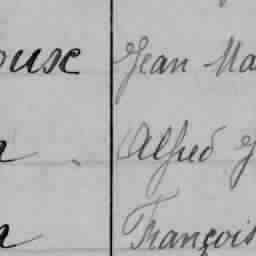 oux Jean Ma
Alfred J
François